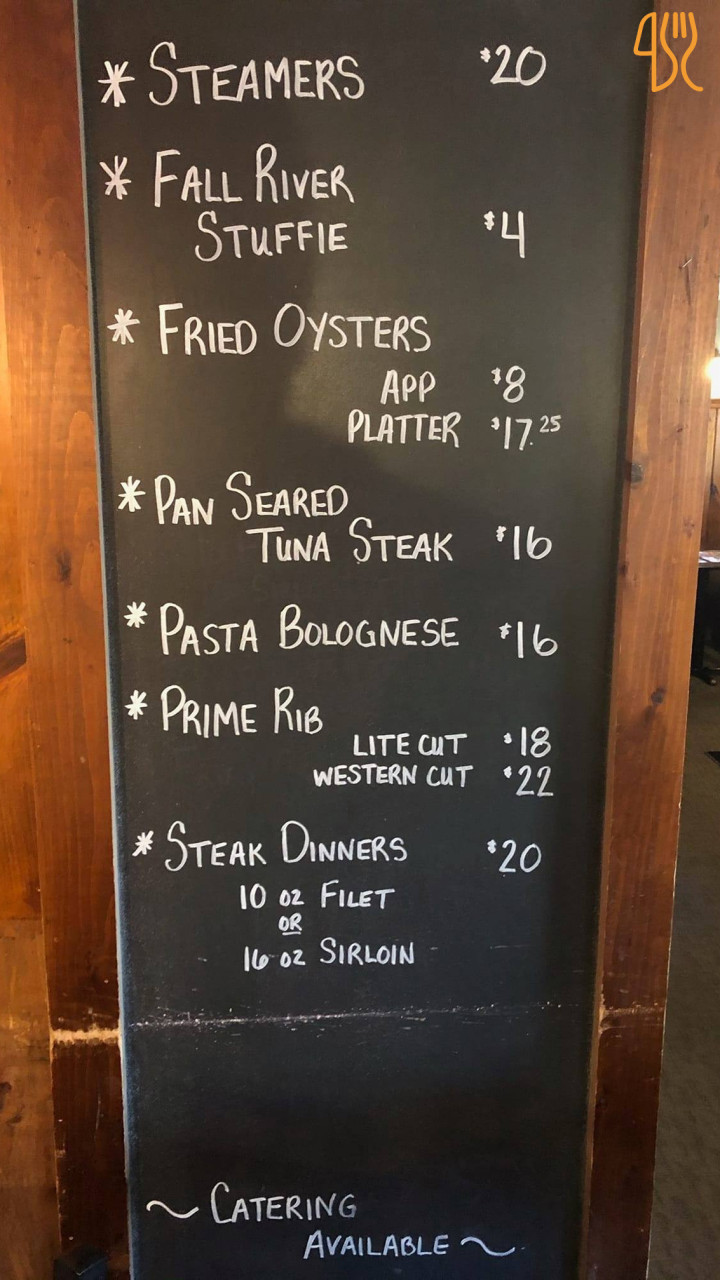 * STEAMERS $20
* FALL RIVER
STUFFIE $4
* FRIED OYSTERS
APP $8
PLATTER $17.25
* PAN SEARED
TUNA STEAK $16
* PASTA BOLOGNESE $16
* PRIME RIB
LITE CUT $18
WESTERN CUT $22
* STEAK DINNERS $20
10 OZ FILET
OR
16 OZ SIRLOIN
~ CATERING
AVAILABLE ~